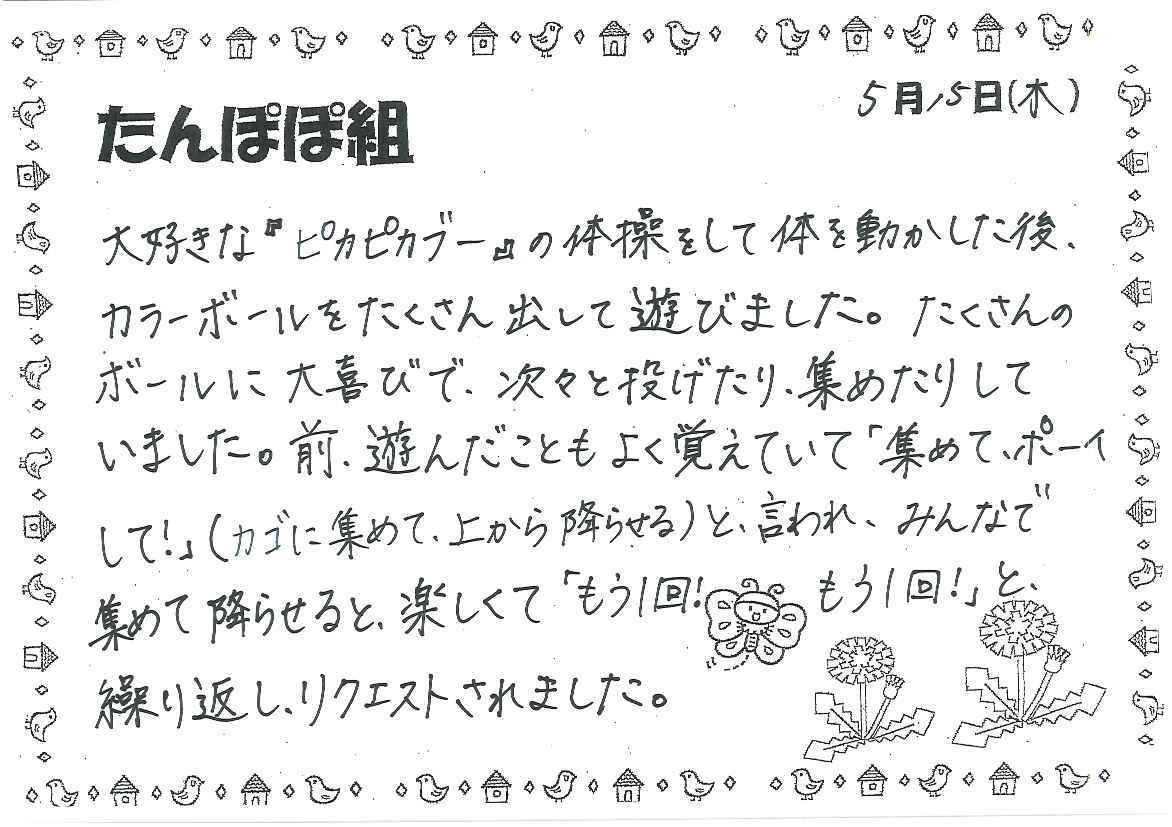 5月15日(木)
たんぽぽ組
大好きな『ピカピカブー』の体操をして体を動かした後、
カラーボールをたくさん出して遊びました。たくさんの
ボールに大喜びで、次々と投げたり、集めたりして
いました。前、遊んだこともよく覚えていて「集めて、ポーイ
して!」(カゴに集めて、上から降らせる)と、言われ、みんなで
集めて降らせると、楽しくて「もう1回!もう1回!」と、
繰り返し、リクエストされました。